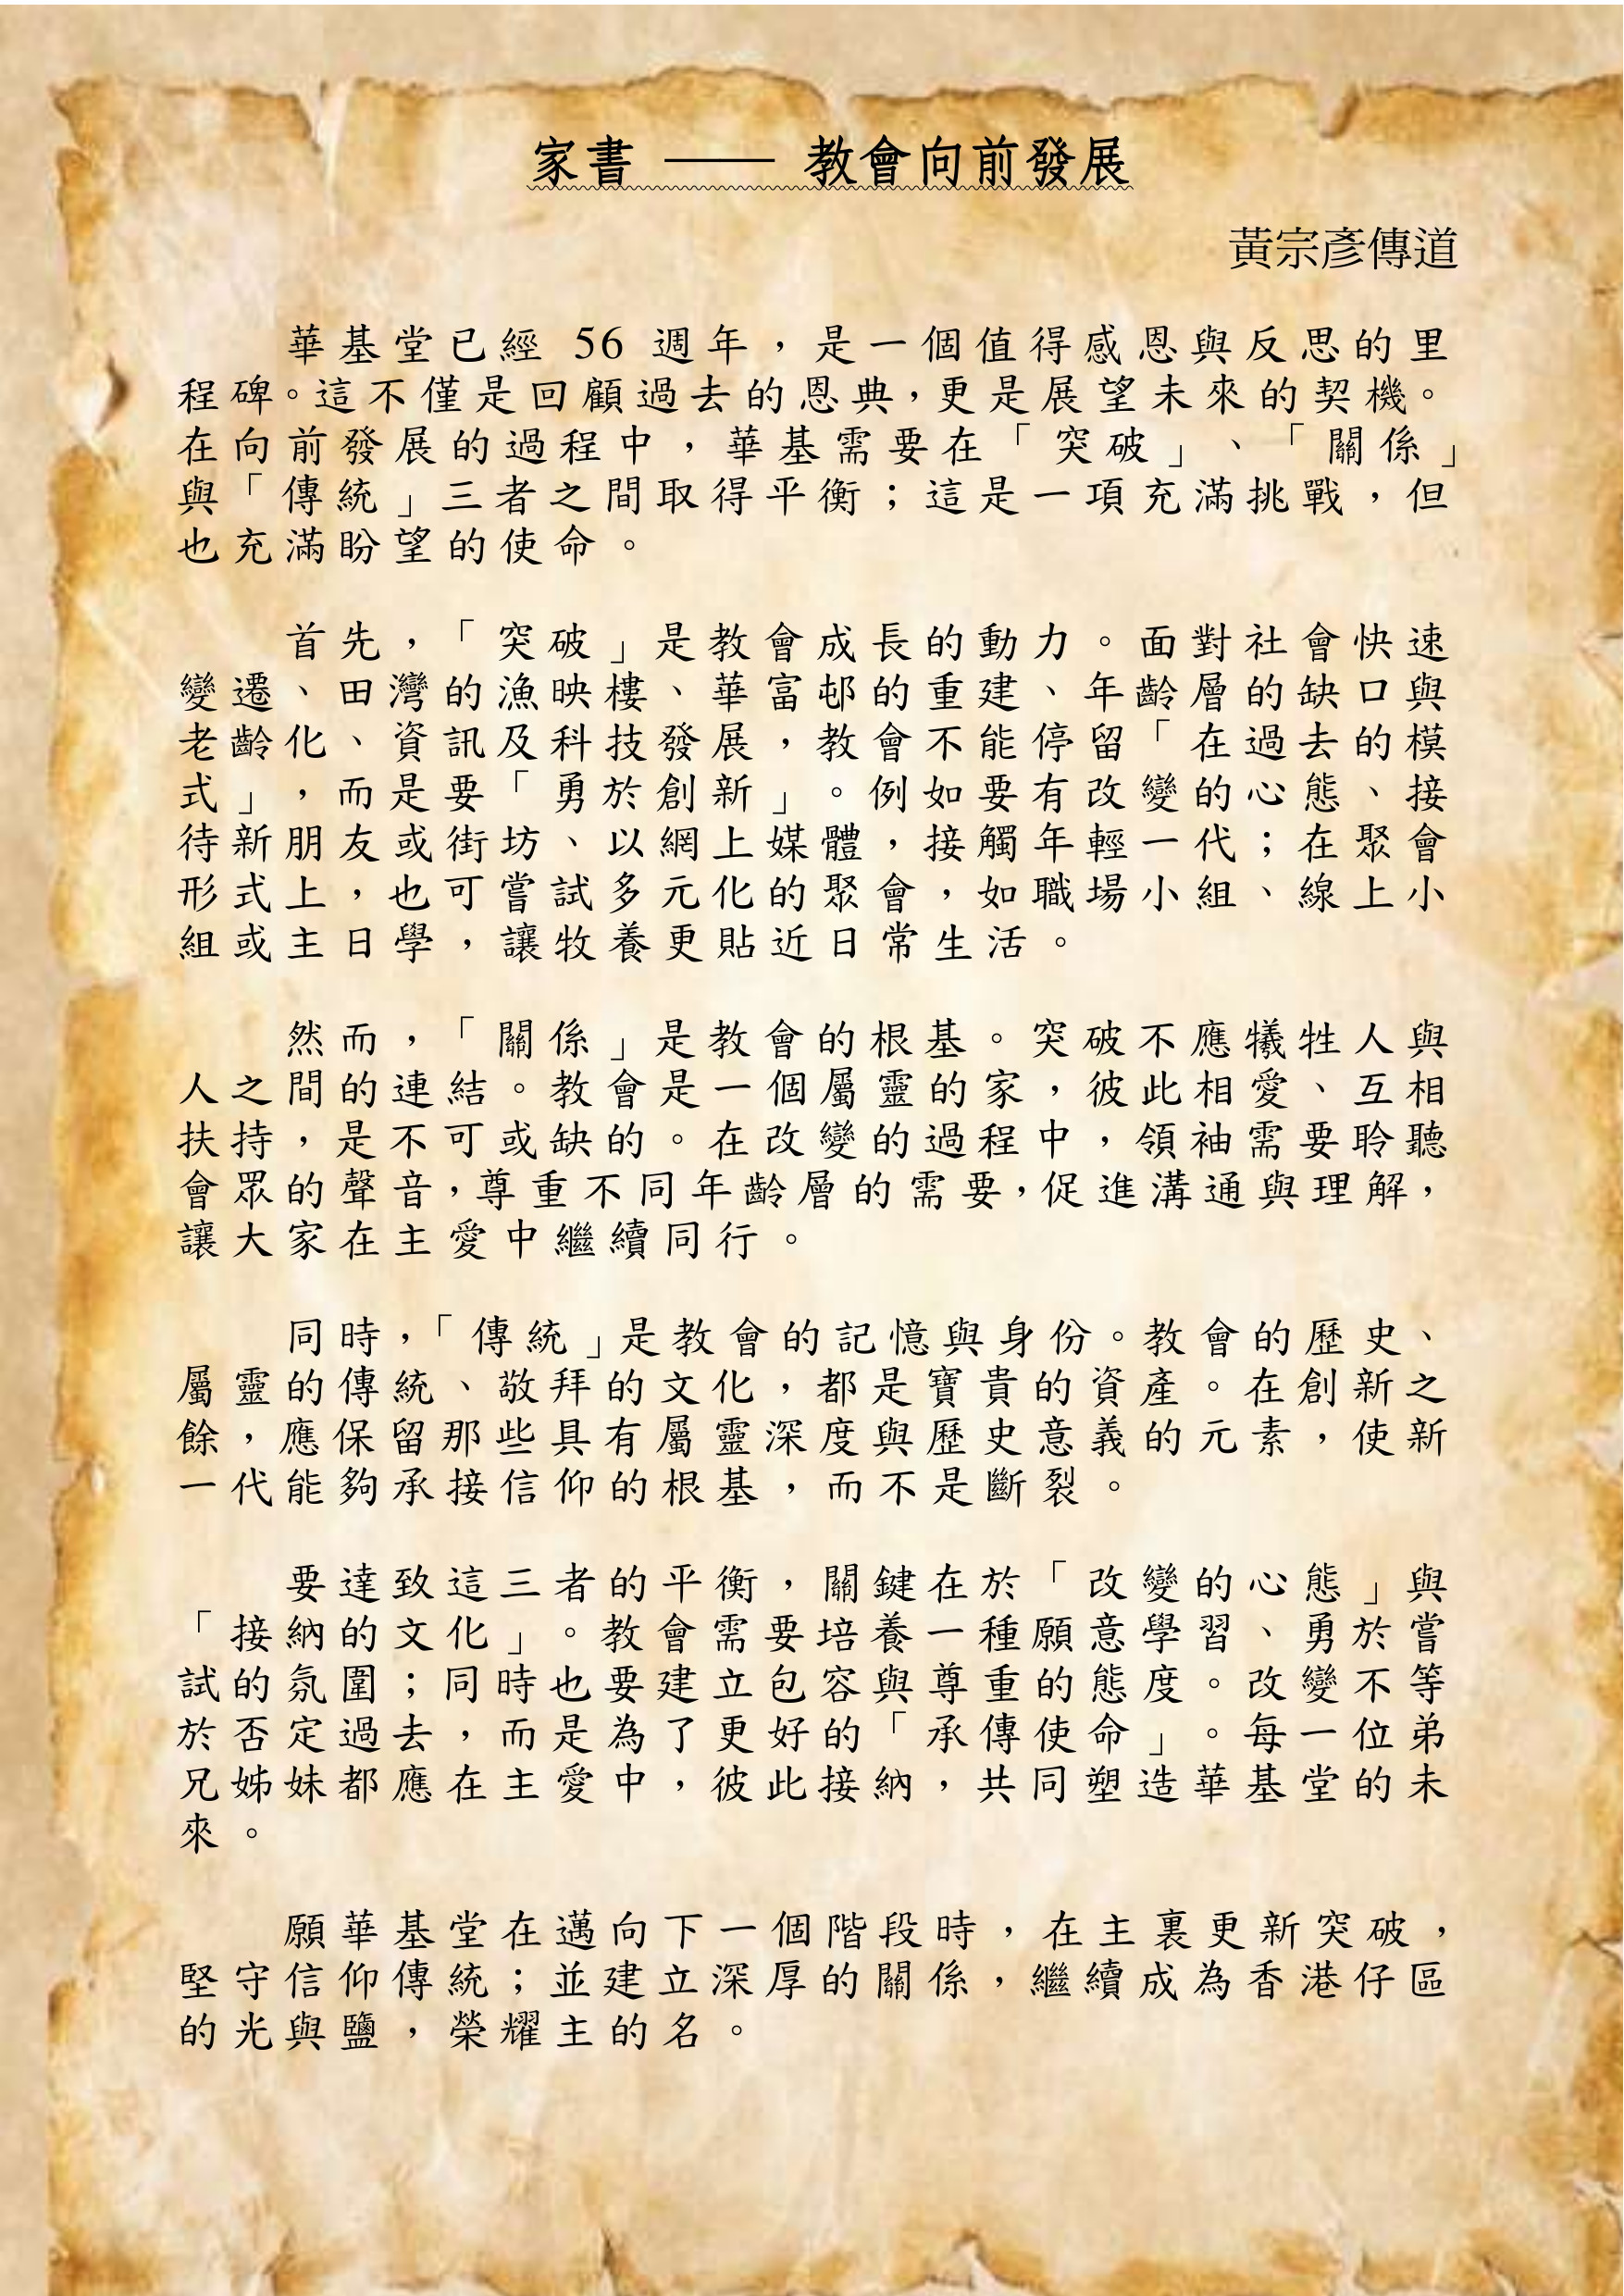 家書 —— 教會向前發展
黃宗彥傳道
華基堂已經 56 週年，是一個值得感恩與反思的里
程碑。這不僅是回顧過去的恩典，更是展望未來的契機。
在向前發展的過程中，華基需要在「突破」、「關係」
與「傳統」三者之間取得平衡；這是一項充滿挑戰，但
也充滿盼望的使命。
首先，「突破」是教會成長的動力。面對社會快速
變遷、田灣的漁映樓、華富邨的重建、年齡層的缺口與
老齡化、資訊及科技發展，教會不能停留「在過去的模
式」，而是要「勇於創新」。例如要有改變的心態、接
待新朋友或街坊、以網上媒體，接觸年輕一代；在聚會
形式上，也可嘗試多元化的聚會，如職場小組、線上小
組或主日學，讓牧養更貼近日常生活。
然而，「關係」是教會的根基。突破不應犧牲人與
人之間的連結。教會是一個屬靈的家，彼此相愛、互相
扶持，是不可或缺的。在改變的過程中，領袖需要聆聽
會眾的聲音，尊重不同年齡層的需要，促進溝通與理解，
讓大家在主愛中繼續同行。
同時，「傳統」是教會的記憶與身份。教會的歷史、
屬靈的傳統、敬拜的文化，都是寶貴的資產。在創新之
餘，應保留那些具有屬靈深度與歷史意義的元素，使新
一代能夠承接信仰的根基，而不是斷裂。
要達致這三者的平衡，關鍵在於「改變的心態」與
「接納的文化」。教會需要培養一種願意學習、勇於嘗
試的氛圍；同時也要建立包容與尊重的態度。改變不等
於否定過去，而是為了更好的「承傳使命」。每一位弟
兄姊妹都應在主愛中，彼此接納，共同塑造華基堂的未
來。
願華基堂在邁向下一個階段時，在主裏更新突破，
堅守信仰傳統；並建立深厚的關係，繼續成為香港仔區
的光與鹽，榮耀主的名。